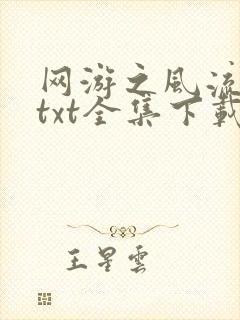 网游之风流
txt全集下载
王星云